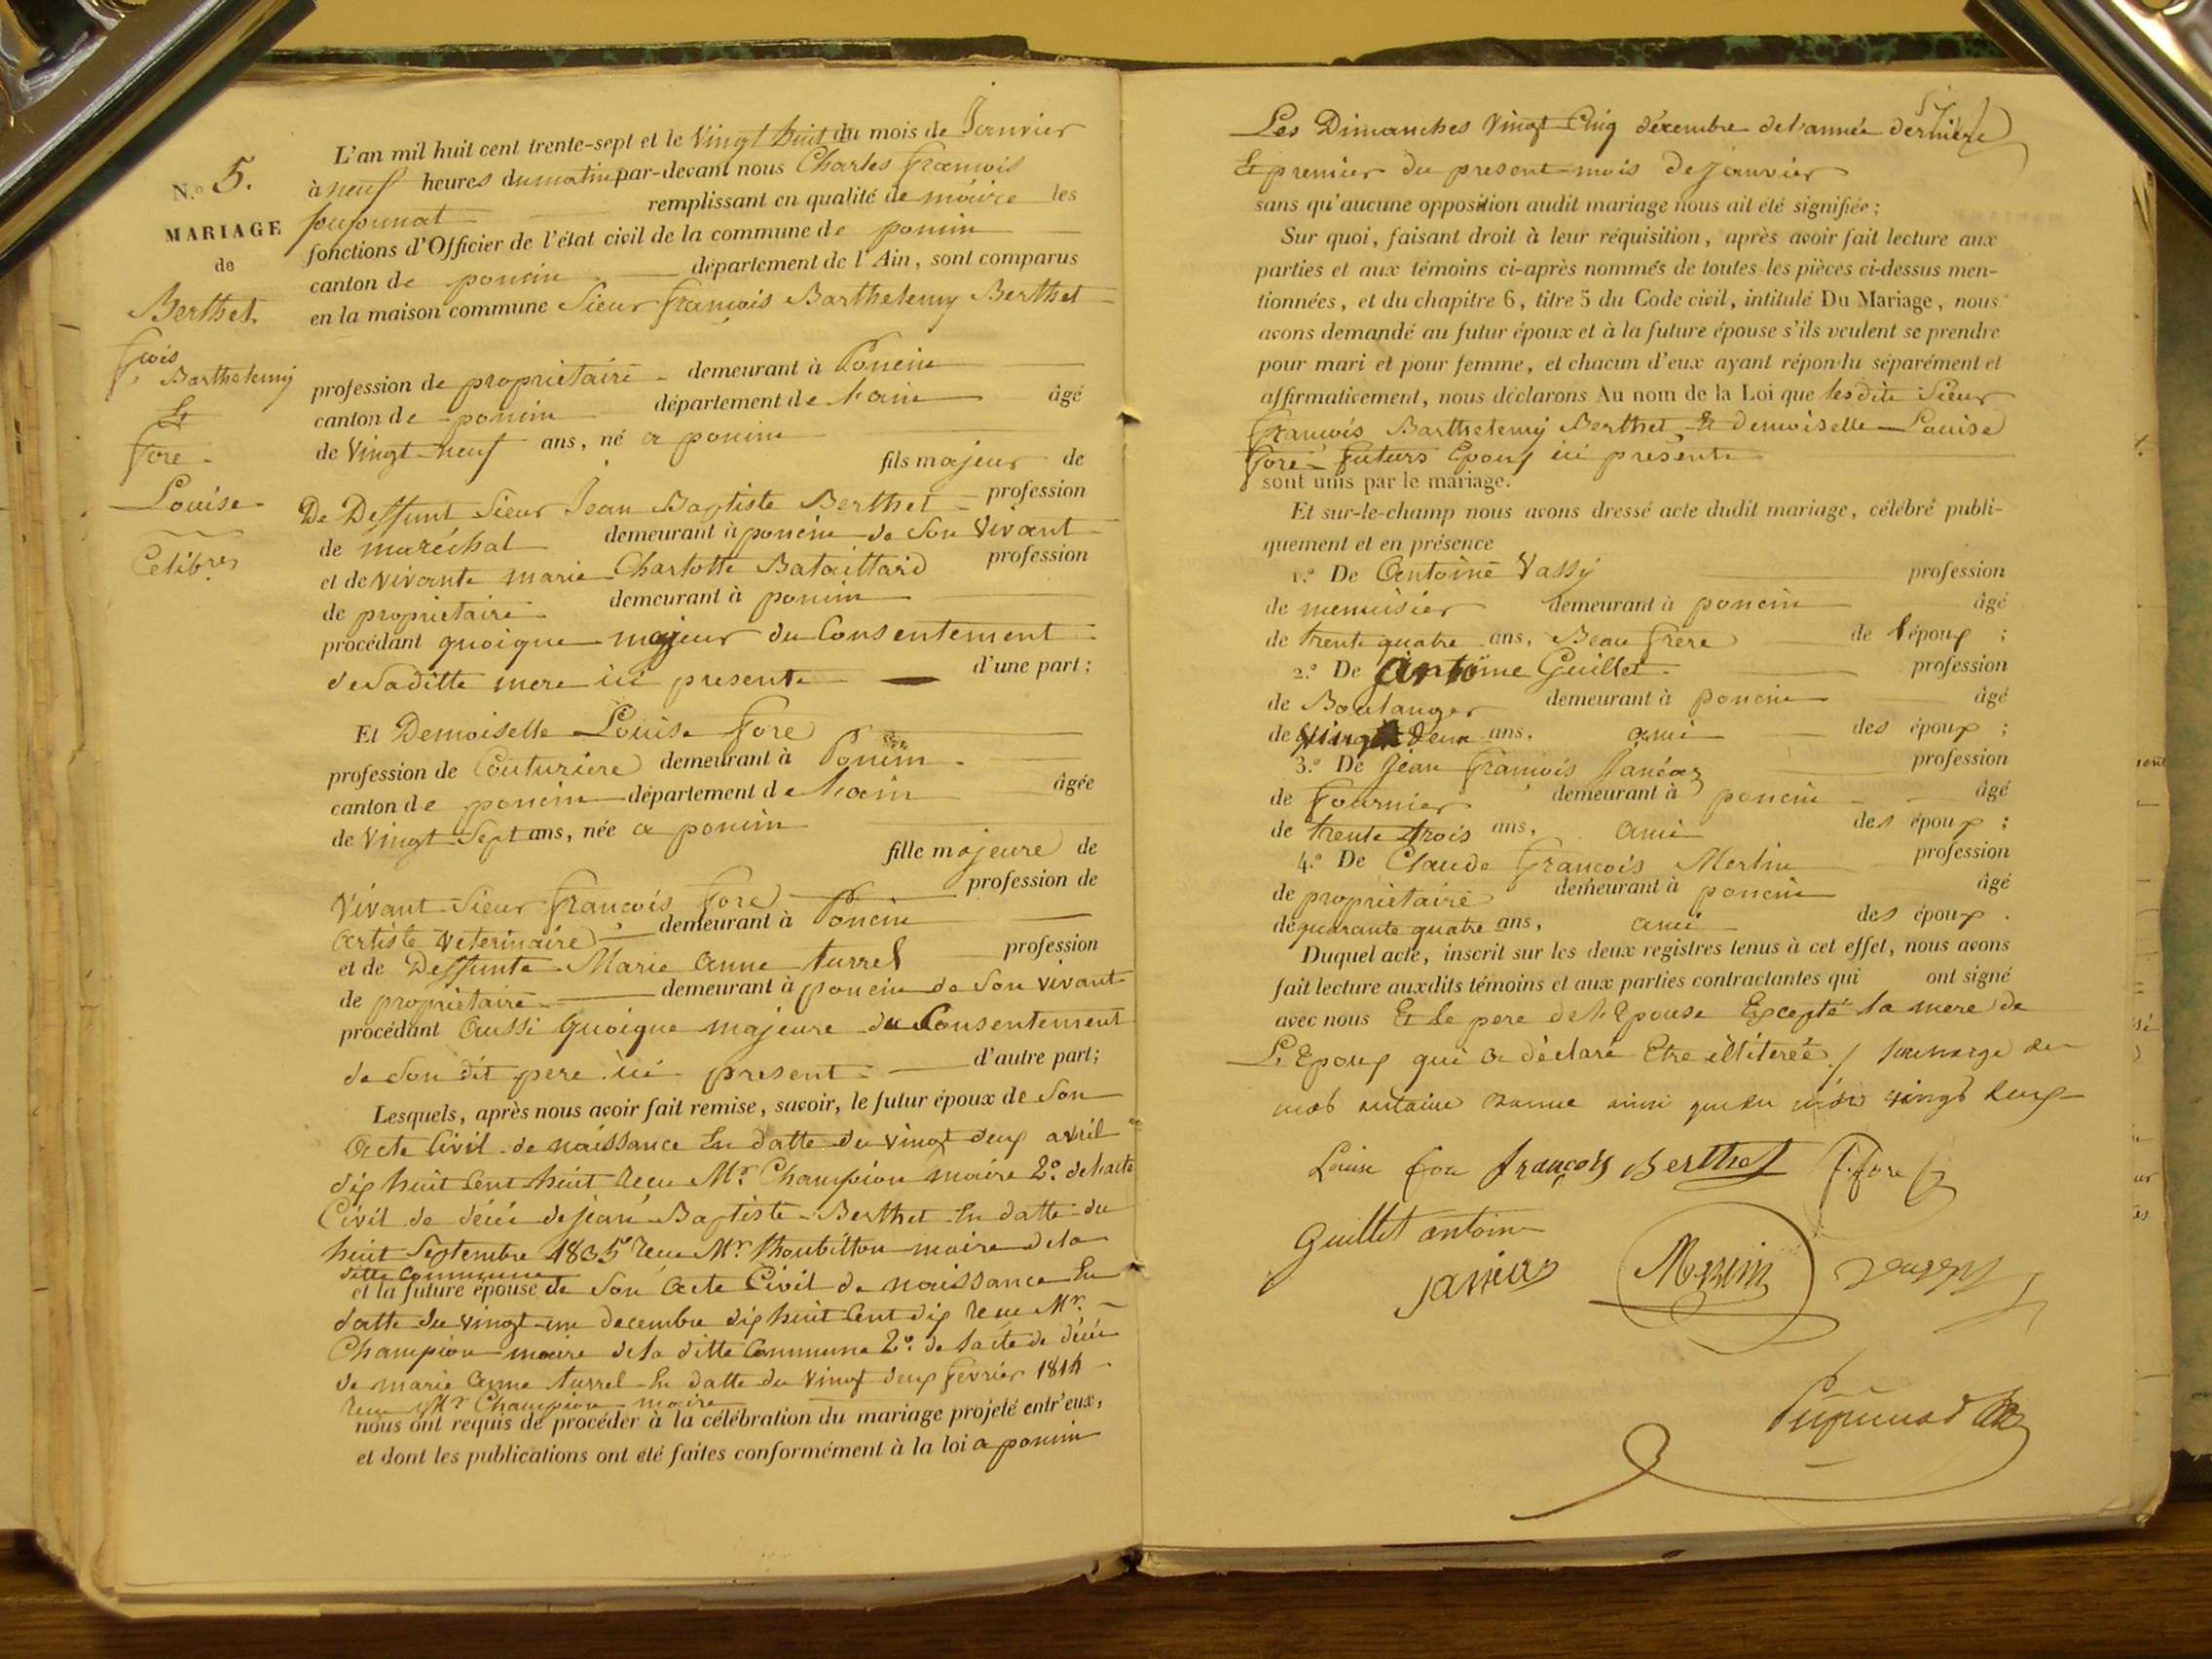 N.o 5.
MARIAGE
de
Berthet
fcois
Barthelemy
Et
fore
Louise
Celibres
L'an mil huit cent trente-sept et le Vingt huit du mois de Janvier
à neuf heures du matin par-devant nous Charles françois
pupunat remplissant en qualité de maire les
fonctions d'Officier de l'état civil de la commune de poncin
canton de poncin département de l'Ain, sont comparus
en la maison commune Sieur françois Barthelemy Berthet
profession de propriétaire demeurant à Poncin
canton de poncin département de lain âgé
de Vingt neuf ans, né a poncin
fils majeur de
De Deffunt Sieur Jean Baptiste Berthet profession
de maréchal demeurant à poncin de Son Vivant
et de vivante marie Charlotte Bataillard profession
de propriétaire demeurant à poncin
procédant quoique majeur du Consentement
de saditte mere ici presente d'une part;
Et Demoiselle Louise fore
profession de Couturiere demeurant à Poncin
canton de poncin département de lain âgée
de Vingt Sept ans, née a poncin
fille majeure de
Vivant Sieur françois fore profession de
Artiste Veterinaire demeurant à Poncin
et de Deffunte Marie anne turrel profession
de propriétaire demeurant à poncin de Son vivant
procédant aussi quoique majeure du Consentement
de son dit pere ici present d'autre part;
Lesquels, après nous avoir fait remise, savoir, le futur époux de Son
acte Civil de naissance En datte du vingt deux avril
dix huit Cent huit recu Mr. Champion maire 2.o de lacte
Civil de décé de jean Baptiste Berthet En datte du
huit Septembre 1835 recu Mr. thoubillon maire dela
ditte Commune
et la future épouse de Son acte Civil de naissance En
datte du vingt un decembre dix huit Cent dix recu Mr.
Champion maire dela ditte Commune 2.o de lacte de décé
de marie anne turrel En datte du Vingt deux fevrier 1814
recu Mr Champion maire
nous ont requis de procéder à la célébration du mariage projeté entr'eux,
et dont les publications ont été faites conformément à la loi a poncin
Les Dimanches Vingt Cinq décembre de l'année dernière
Et premier du present mois de janvier
sans qu'aucune opposition audit mariage nous ait été signifiée;
Sur quoi, faisant droit à leur réquisition, après avoir fait lecture aux
parties et aux témoins ci-après nommés de toutes les pièces ci-dessus men-
tionnées, et du chapitre 6, titre 5 du Code civil, intitulé Du Mariage, nous
avons demandé au futur époux et à la future épouse s'ils veulent se prendre
pour mari et pour femme, et chacun d'eux ayant répondu séparément et
affirmativement, nous déclarons Au nom de la Loi que lesdits Sieur
françois Barthelemy Berthet & demoiselle Louise
fore futurs Epoux ici présents
sont unis par le mariage.
Et sur-le-champ nous avons dressé acte dudit mariage, célébré publi-
quement et en présence
1.o De Antoine Vassy profession
de menuisier demeurant à poncin âgé
de trente quatre ans, Beau frere de l'époux ;
2.o De antoine Guillet profession
de Boulanger demeurant à poncin âgé
de vingt deux ans, ami des époux ;
3.o De jean françois janéaz profession
de fournier demeurant à poncin âgé
de trente trois ans, ami des époux ;
4.o De Claude françois Merlin profession
de propriétaire demeurant à poncin âgé
de quarante quatre ans, ami des époux .
Duquel acte, inscrit sur les deux registres tenus à cet effet, nous avons
fait lecture auxdits témoins et aux parties contractantes qui ont signé
avec nous Et le pere de l'Epouse Excepté la mere de
L'Epoux qui a déclaré Etre illiterée / surcharge du
mot antoine vingt deux
Louise fore françois Berthet f fore
Guillet antoine
janéaz Merlin
Pupunat